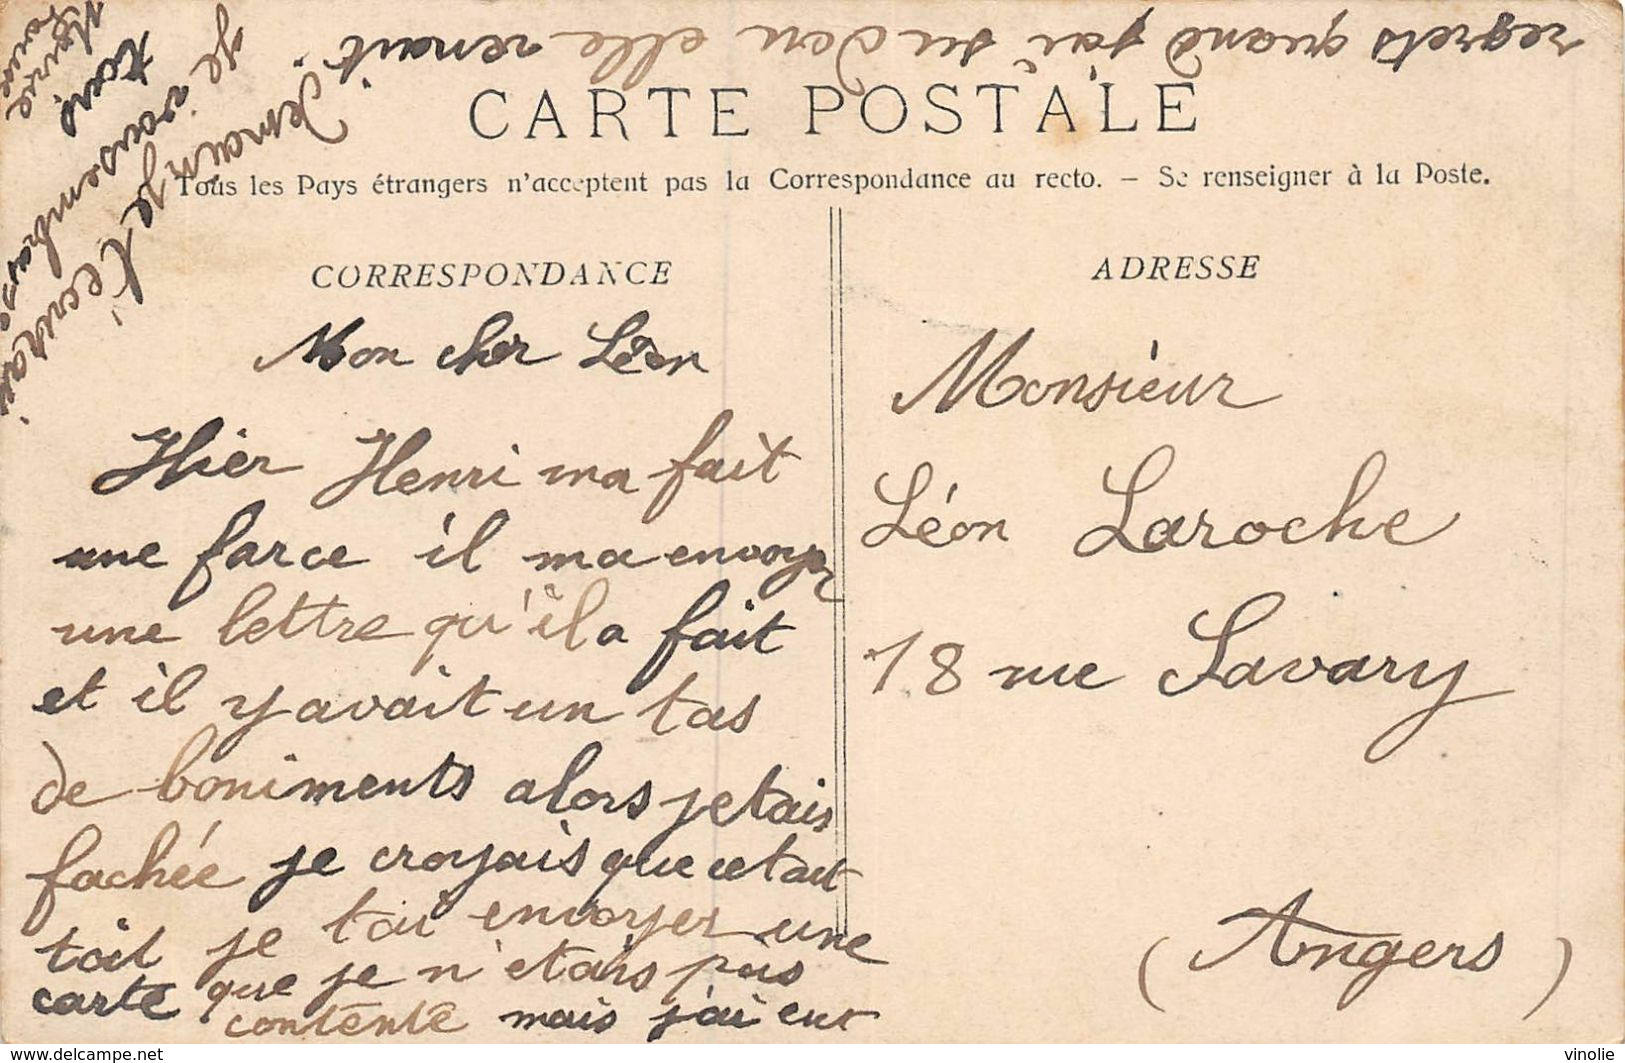 CARTE POSTALE
Tous les Pays étrangers n'acceptent pas la Correspondance au recto. – Se renseigner à la Poste.
CORRESPONDANCE
Mon cher Léon
Hier Henri ma fait
une farce il ma envoyer
une lettre qu'il a fait
et il y avait un tas
de boniments alors jetais
fachée je croyais que cetait
toit je tai envoyer une
carte que je n'etais pas
contente mais j'ai eut
regrets quand j'ai su d'ou elle venait.
Demain je t'ecrirai
je vous embrasse
tous
ADRESSE
Monsieur
Léon Laroche
18 rue Savary
(Angers)
www.delcampe.net
vinolie